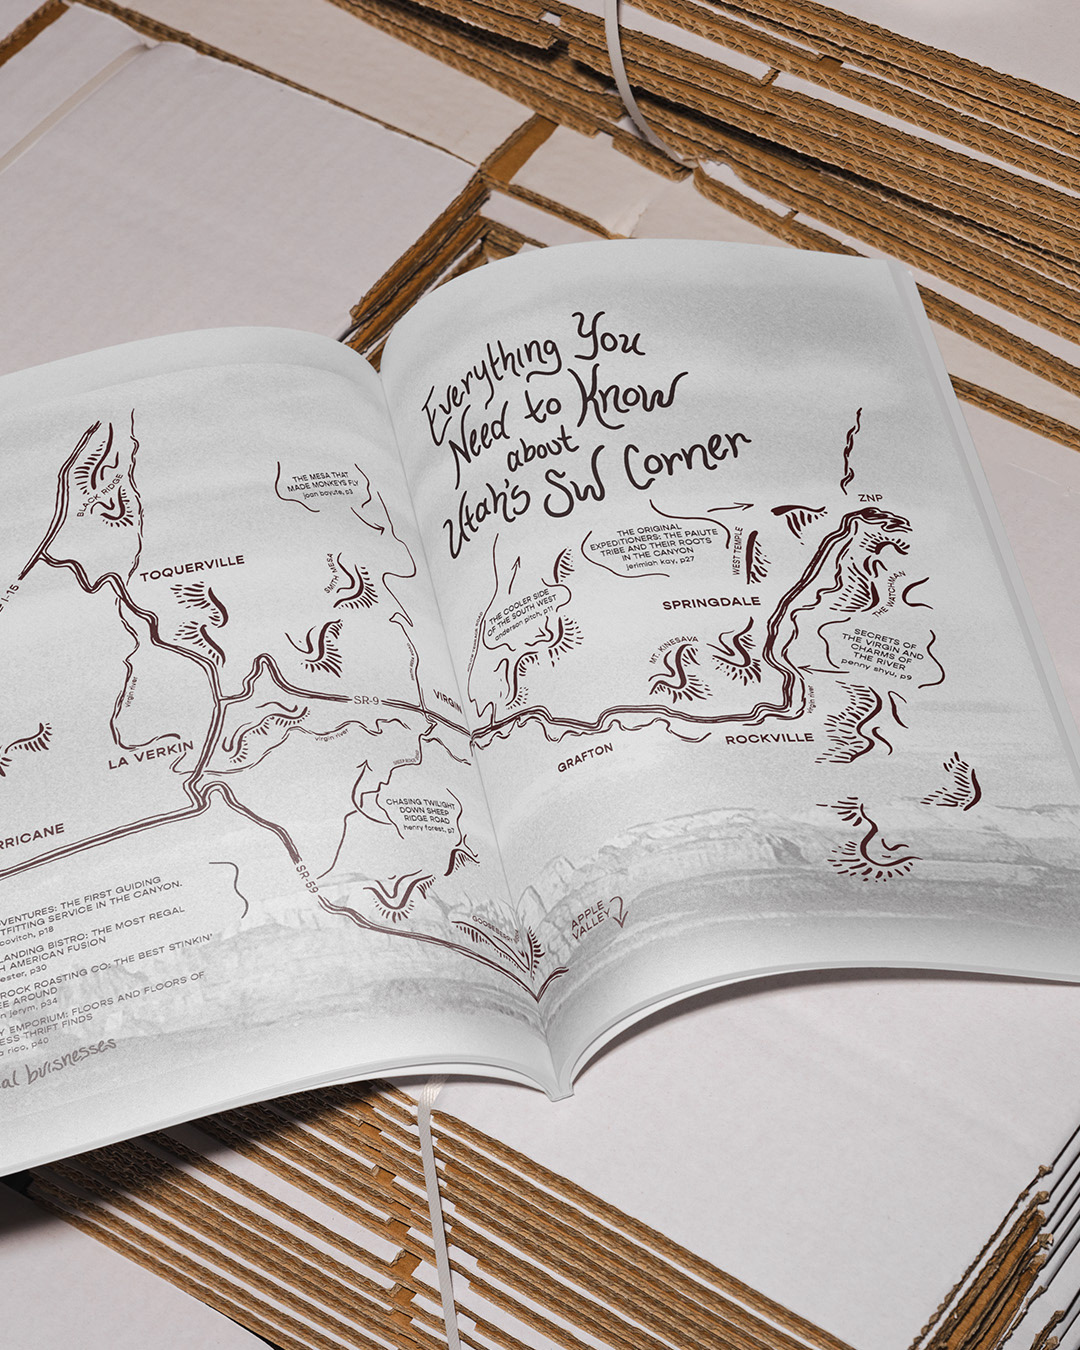 Everything You
Need to Know
about
Utah's SW Corner
BLACK RIDGE
I-15
TOQUERVILLE
THE MESA THAT
MADE MONKEYS FLY
SMITH MESA
virgin river
LA VERKIN
SR-9
virgin river
VIRGIN
RRICANE
SR-59
CHASING TWILIGHT
DOWN SHEEP
RIDGE ROAD
henry forest, p7
GOOSEBERRY
VENTURES: THE FIRST GUIDING
TFITTING SERVICE IN THE CANYON.
covitch, p18
LANDING BISTRO: THE MOST REGAL
H AMERICAN FUSION
ester, p30
ROCK ROASTING CO: THE BEST STINKIN'
EE AROUND
n jerym, p34
Y EMPORIUM: FLOORS AND FLOORS OF
ESS THRIFT FINDS
a rico, p40
al buisnesses
THE COOLER SIDE
OF THE SOUTH WEST
anderson pitch, p11
THE ORIGINAL
EXPEDITIONERS: THE PAIUTE
TRIBE AND THEIR ROOTS
IN THE CANYON
jerimiah kay, p27
WEST TEMPLE
ZNP
THE WATCHMAN
SPRINGDALE
MT. KINESAVA
SECRETS OF
THE VIRGIN AND
CHARMS OF
THE RIVER
penny shyu, p9
virgin river
GRAFTON
ROCKVILLE
APPLE
VALLEY